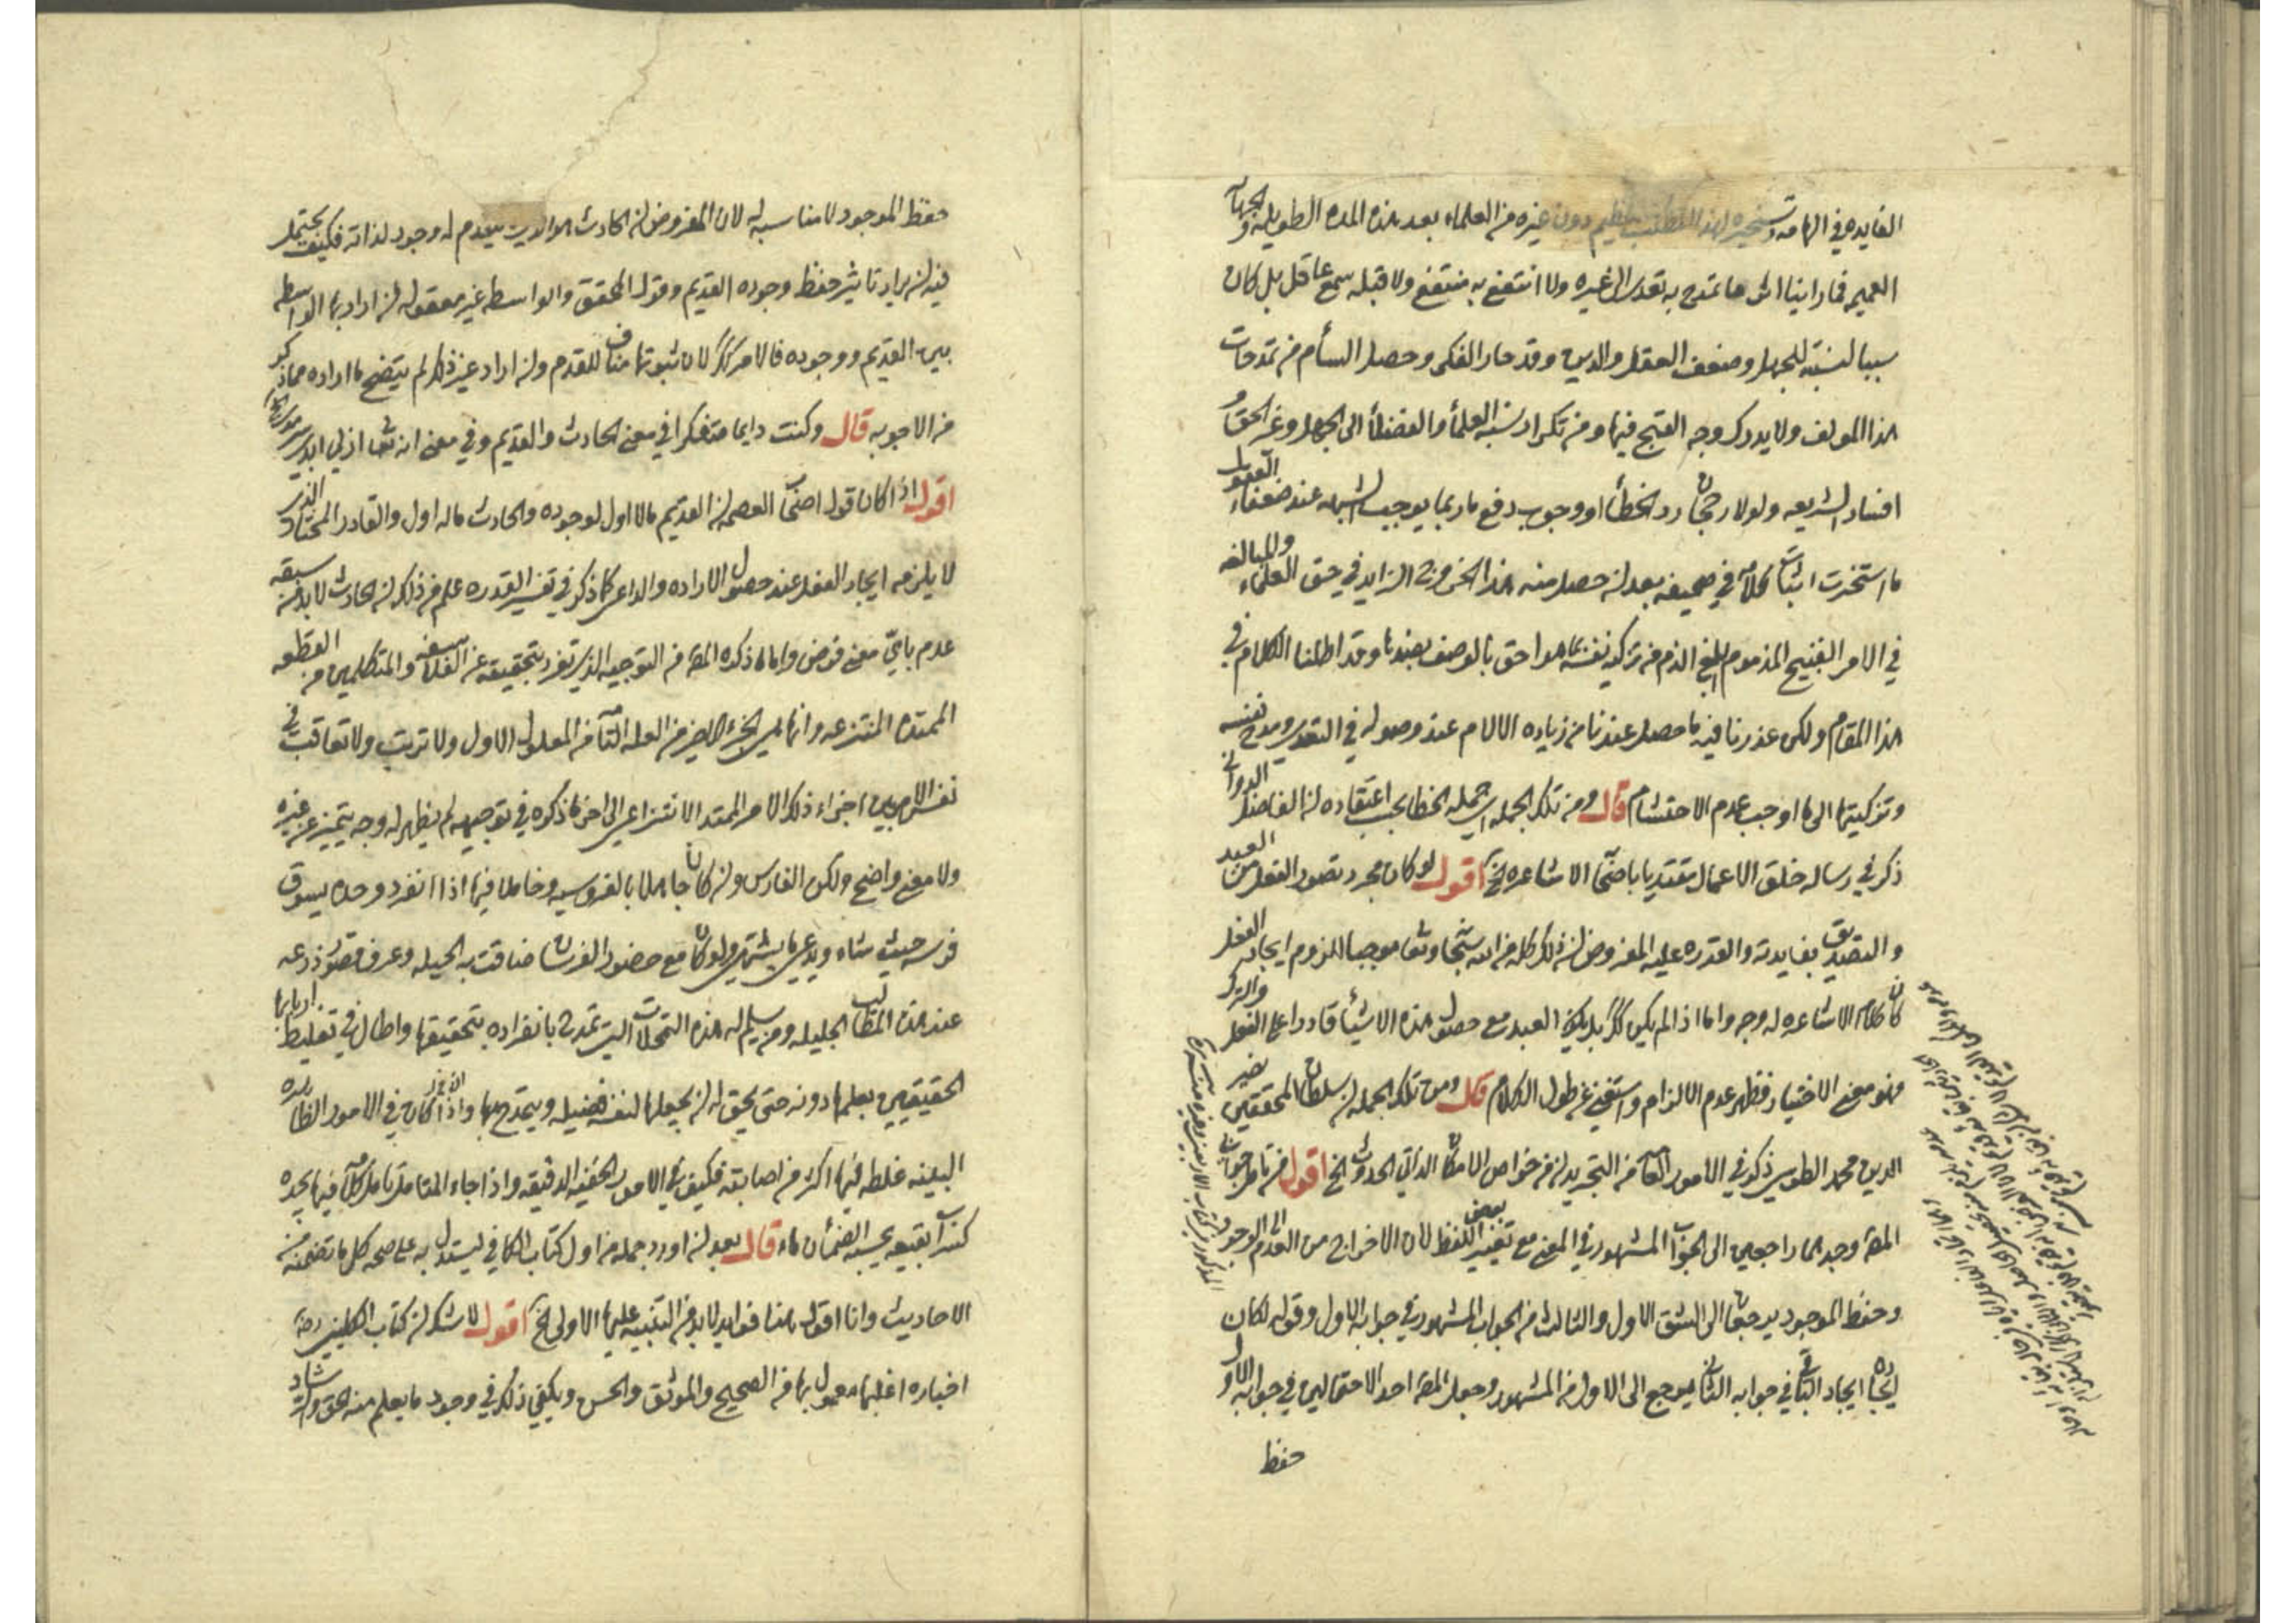 الفايده في الهامه وتسخيره لهذا المطلب العظيم دون غيره من العلماء بعد هذه المده الطويله والجهات
العميم فما راينا اثر ما تمدح به تعدى الى غيره ولا انتفع به منتفع ولا قبله سمع عاقل بل كان
سببا لنسبته للجهل وضعف العقل والدين وقد حار الفكر وحصل السأم من تمدحات
هذا المولف ولا يدرك وجه القبح فيها ومن تكرار نسبه العلمأ والفضلأ الى الجهل وغمر الحق و
افساد الشريعه ولولا رجحان رد الخطأ او وجوب دفع ما ربما يوجب الشبهه عند ضعفاء العقول
ما استخرت اثبات كلامه في صحيفه بعد ان حصل منه هذا الخروج الزايد في حق العلماء والمبالغه
في الامر القبيح المذموم ابلغ الذم من تزكيه نفسه بما هو احق بالوصف بضدها وقد اطلنا الكلام في
هذا المقام ولكن عذرنا فيه ما حصل عندنا من زياده الالام عند وصوله في التعدى ومدح نفسه
وتزكيتها الى ما اوجب عدم الاحتشام قال ومن تلك الجمله اى جمله الخطا بحسب اعتقاده ان الفاضل الدواني
ذكر في رساله خلق الاعمال مقتديا باصحاب الاشاعره الخ اقول لو كان مجرد تصور الفعل من العبد
والتصديق بفايدته والقدره عليه المفروض ان ذلك كله من الله سبحانه وتعا موجبا للزوم ايجاد الفعل
كان كلام الاشاعره له وجه واما اذا لم يكن كذلك بل يكون العبد مع حصول هذه الاشيأ قادرا على الفعل والترك
فهو معنى الاختيار فظهر عدم الالزام واستغنى عن طول الكلام قال ومن تلك الجمله ان سلطان المحققين نصير
الدين محمد الطوسي ذكر في الامور العامه من التجريد ان من خواص الامكان الذاتي الحدوث الخ اقول من تامل جوابات
المصه وجدهما راجعين الى الجواب المشهور في المعنى مع تغيير بعض اللفظ لان الاخراج من العدم الى الوجود
وحفظ الموجود يرجعان الى الشق الاول والثالث من الجواب المشهور في جوابه الاول وقوله لكان
ايجاده ايجاد الباقي في جوابه الثاني يرجع الى الاول من المشهور وجعل المصه احد الاحتمالين في جوابه الاول و
حفظ
حفظ الموجود لا مناسبه له لان المفروض ان الحادث هو الذي تقدم له وجود لذاته فكيف يحتمل
فيه ان يراد تاثير حفظ وجوده القديم وقول المحقق والواسطه غير معقوله ان اراد بها الواسطه
بين القديم ووجوده فالامر كذلك لان ثبوتها مناف للقدم وان اراد غير ذلك لم يتضح ما اراده مما ذكر
من الاجوبه قال وكنت دايما متفكرا في معنى الحادث والقديم وفي معنى انه تعا ازلي ابدي سرمدي الخ
اقول اذا كان قول اصحاب العصمه ان القديم ما لا اول لوجوده والحادث ما له اول والقادر المختار الذي
لا يلزمه ايجاد الفعل عند حصول الاراده والداعى كما ذكر في تفسير القدره علم من ذلك ان الحادث لا بد من سبقه
عدم باي معنى فرض واما ما ذكره المصه من التوجيه الذي تفرد بتحقيقه عن الفلاسفه والمتكلمين من القطعه
الممتده المنتزعه وانها هي الجزء الاخير من العله التامه من المعلول الاول ولا ترتب ولا تعاقب في
نفس الامر بين اجزاء ذلك الامر الممتد الانتزاعي الى اخر ما ذكره في توجيهه لم يظهر له وجه يتميز عن غيره
ولا معنى واضح ولكن الفارس وان كان جاهلا بالفروسيه وخاملا فيها اذا انفرد وحده يسوق
فرسه حيث شاء ويدعي ما يشتهي ولو كان مع حضور الفرسان ضاقت به الحيله وعرف قصور ذرعه
عند هذه المطالب الجليله ومن يسلم له هذه التمحلات التي تمدح بانفراده بتحقيقها واطال في تغليط اربابها
الحقيقيين بعلمها دونه حتى يحق له ان يجعلها لنفسه فضيله ويتمدح بها واذا كان في الامور الظاهره
البينه غلطه فيها اكثر من اصابته فكيف في الامور الخفيه الدقيقه واذا جاء المتامل تامل كلامه فيها يجده
كسراب بقيعه يحسبه الضمآن ماء قال بعد ان اورد جمله من اول كتاب الكافي ليستدل به على صحه كل ما تضمنه من
الاحاديث وانا اقول هنا فوايد لا بد من التنبيه عليها الاولى الخ اقول لا شك ان كتاب الكليني رحمه
اخباره اغلبها معمول بها من الصحيح والموثق والحسن ويكفي ذلك في وجود ما يعلم منه الحق والرشاد